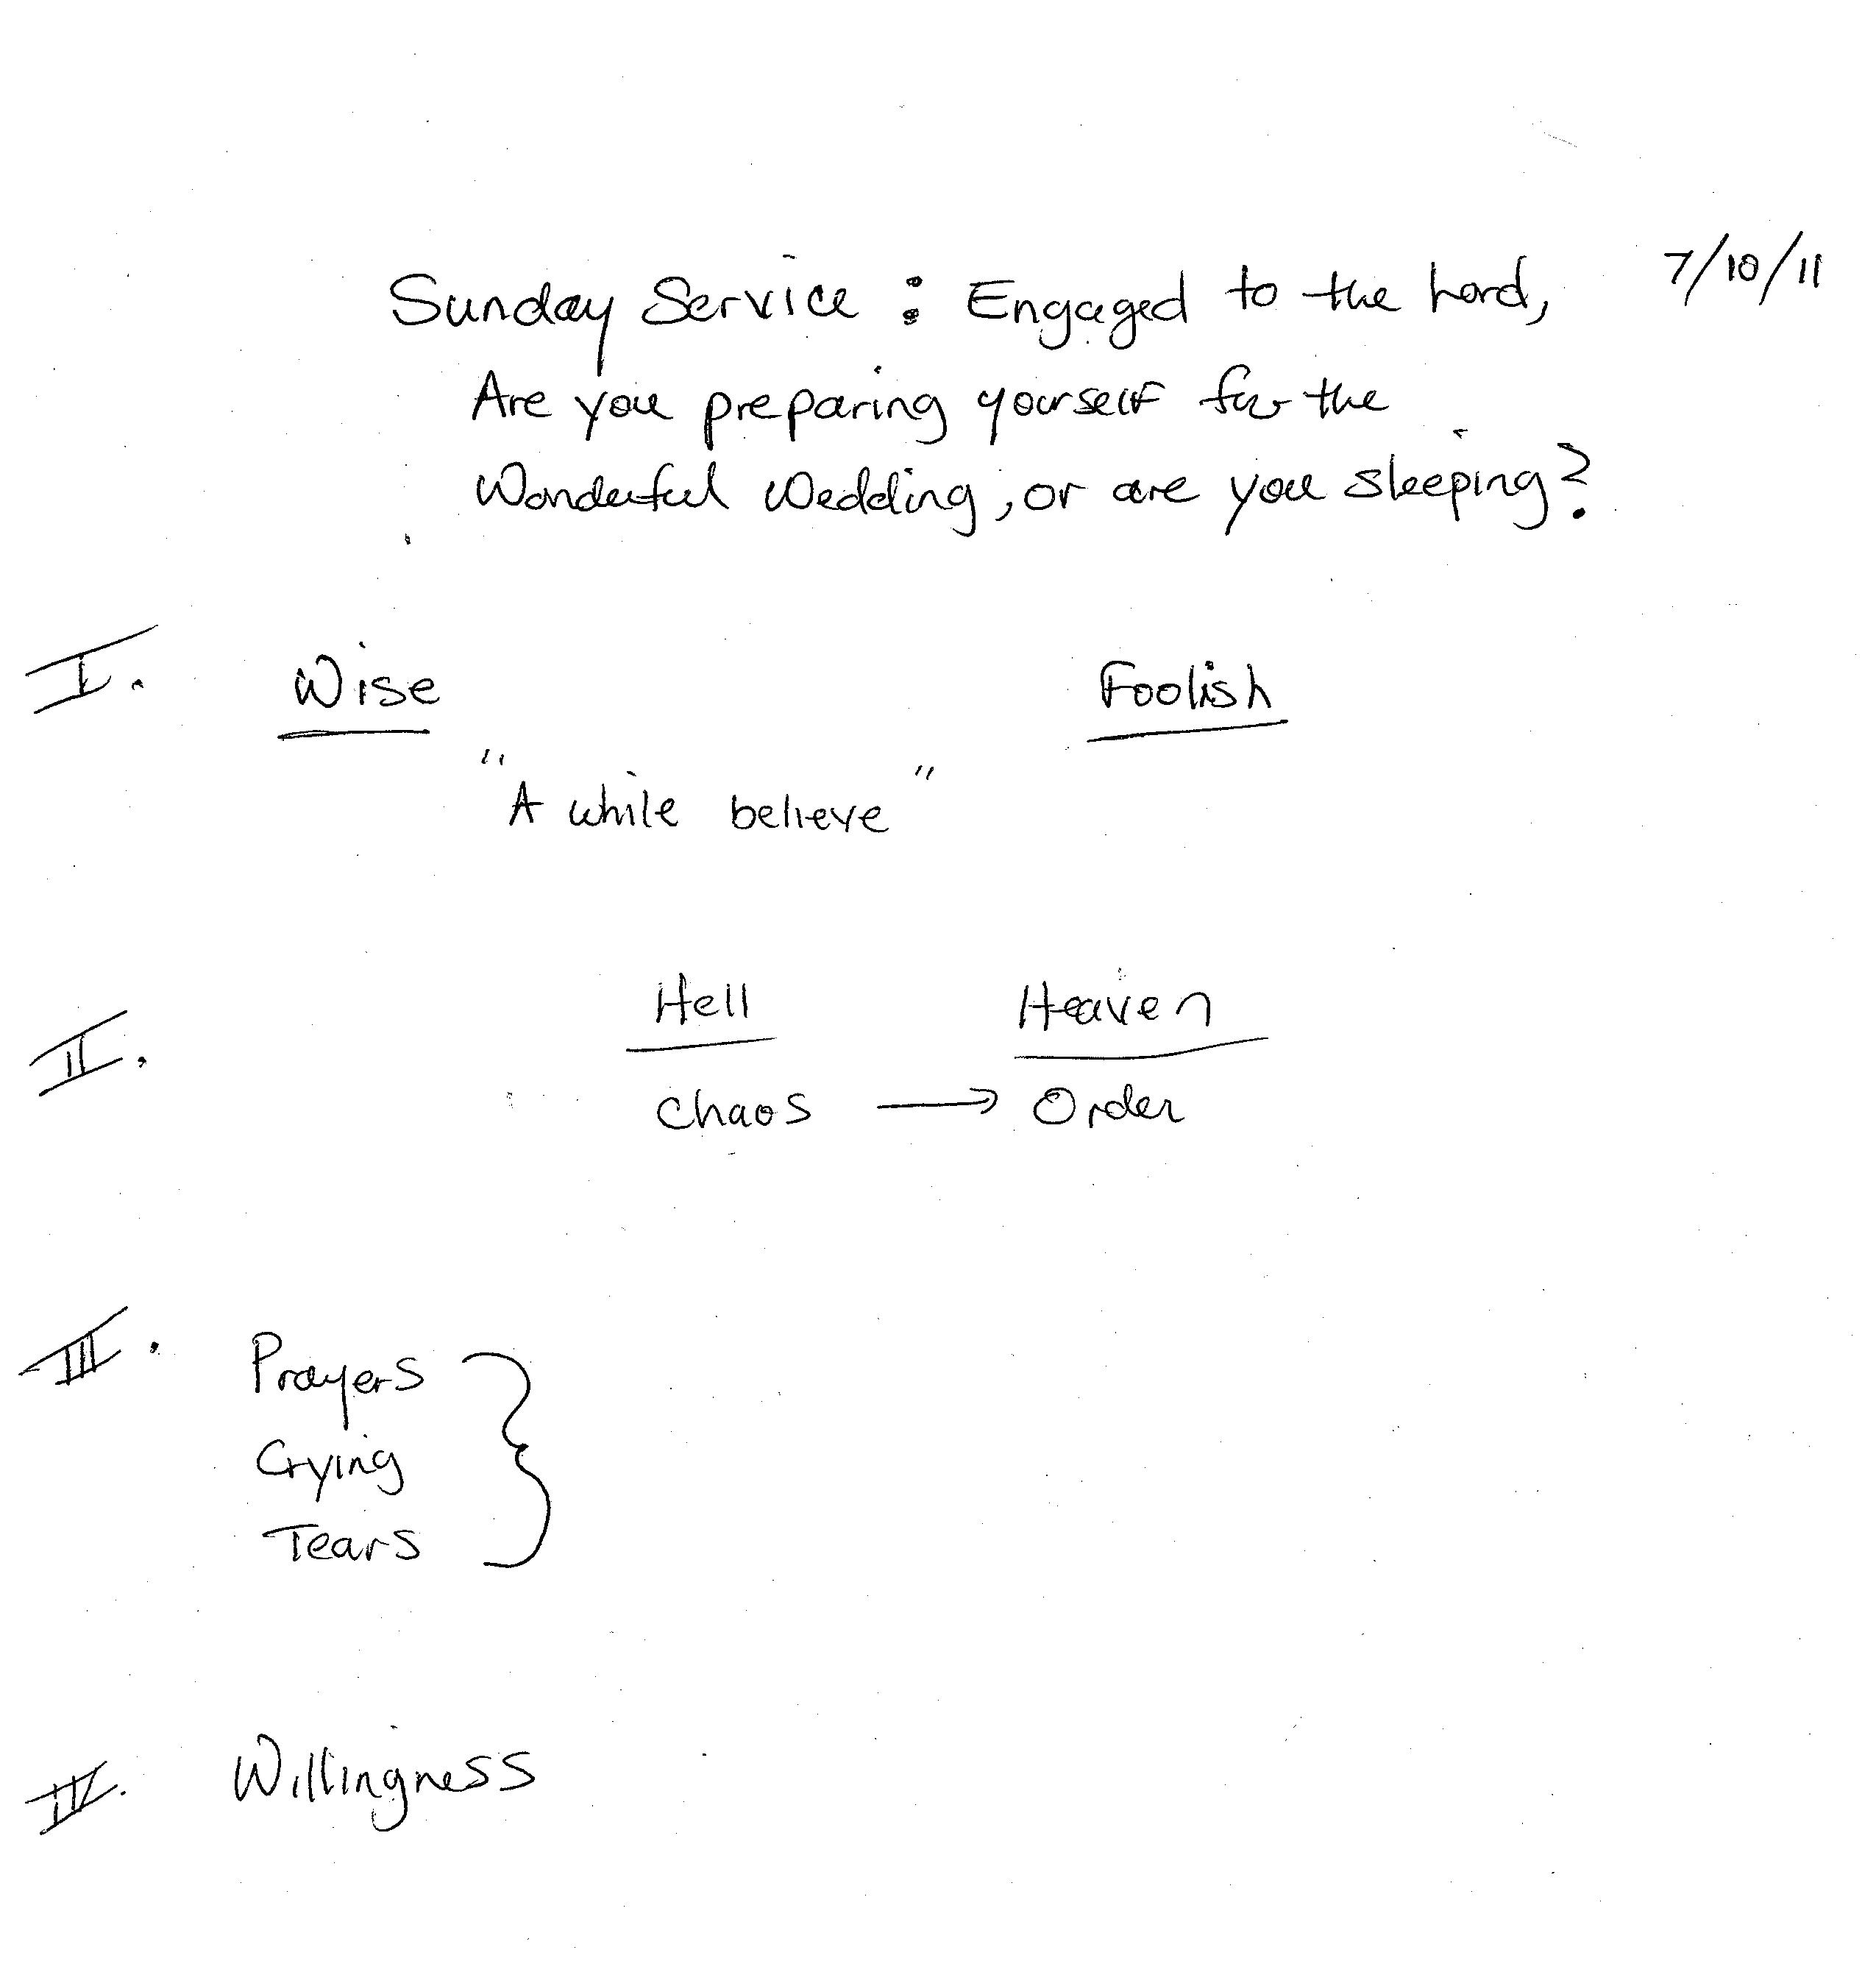 7/10/11
Sunday Service : Engaged to the Lord,
Are you preparing yourself for the
Wonderful Wedding, or are you sleeping?
I. Wise Foolish
"A while believe"
II. Hell Heaven
Chaos → Order
III. Prayers
Crying
Tears
IV. Willingness